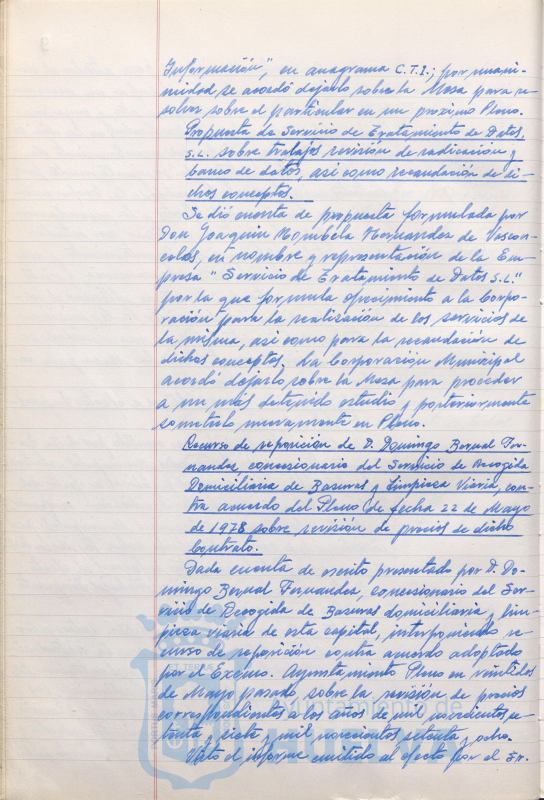 Información", en anagrama C.T.I.; por unani-
midad se acordó dejarlo sobre la Mesa para re-
solver sobre el particular en un próximo Pleno.
Propuesta de Servicio de Tratamiento de Datos,
S.L. sobre trabajos revisión de radicación y
banco de datos, así como recaudación de di-
chos conceptos.
Se dió cuenta de propuesta formulada por
Don Joaquín Nombela Hernandez de Vascon-
celos, en nombre y representación de la Em-
presa "Servicio de Tratamiento de Datos S.L."
por la que formula ofrecimiento a la Corpo-
ración para la realización de los servicios de
la misma, así como para la recaudación de
dichos conceptos. La Corporación Municipal
acordó dejarlo sobre la Mesa para proceder
a un más detenido estudio y posteriormente
someterlo nuevamente en Pleno.
Recurso de reposición de D. Domingo Bernal Fer-
nandez, concesionario del Servicio de Recogida
Domiciliaria de Basuras y Limpieza Viaria, con-
tra acuerdo del Pleno de fecha 22 de Mayo
de 1978 sobre revisión de precios de dicho
Contrato.
Dada cuenta de escrito presentado por D. Do-
mingo Bernal Fernandez, concesionario del Ser-
vicio de Recogida de Basuras domiciliaria y lim-
pieza viaria de esta capital, interponiendo re-
curso de reposición contra acuerdo adoptado
por el Excmo. Ayuntamiento Pleno en veintidos
de Mayo pasado, sobre la revisión de precios
correspondientes a los años de mil novecientos se-
tenta y siete y mil novecientos setenta y ocho.
Visto el informe emitido al efecto por el Sr.
Ayuntamiento de
HUELVA